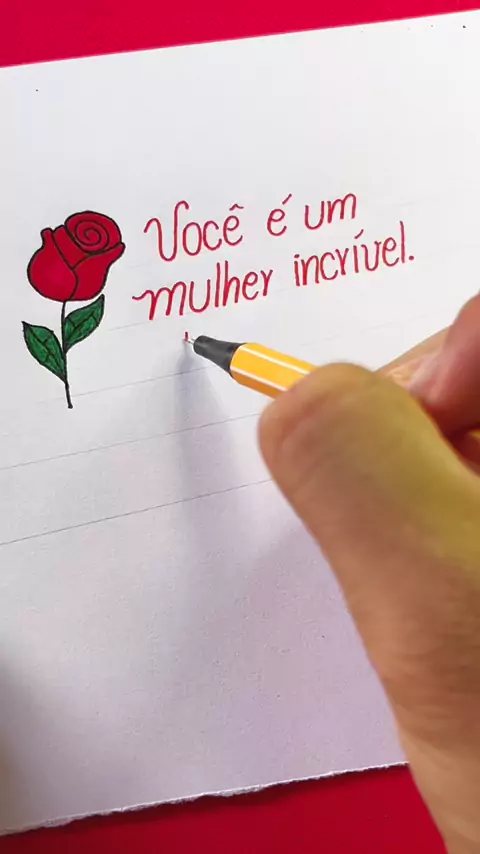 Você é um
mulher incrível.